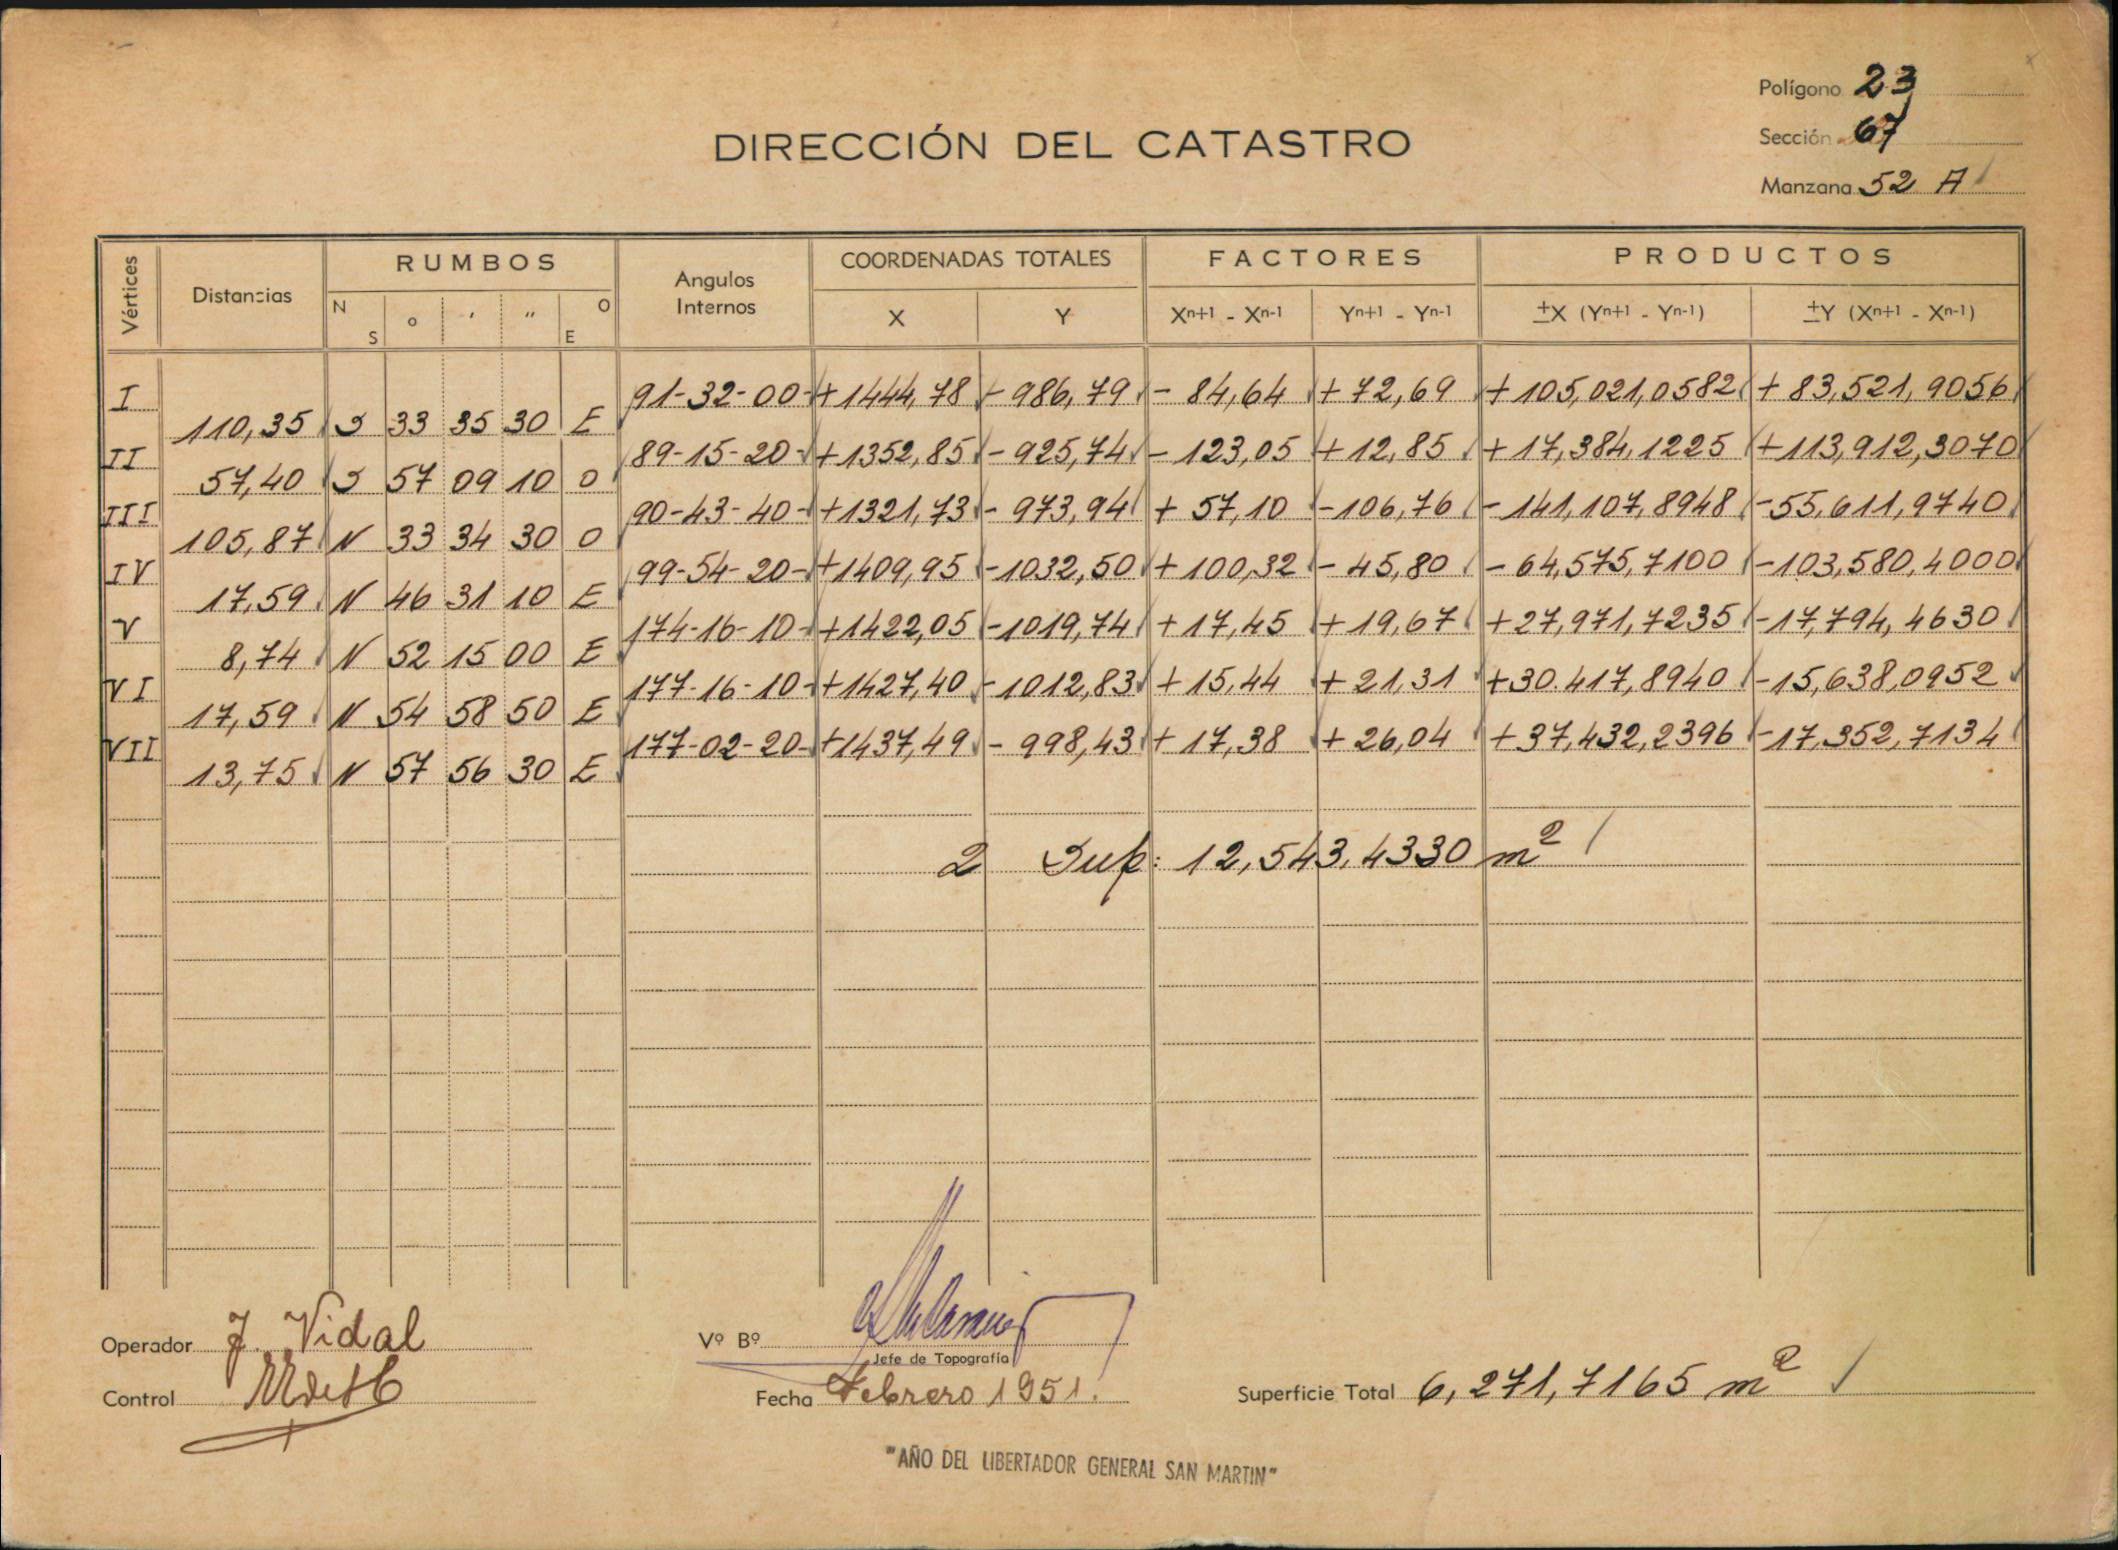 Polígono 23
DIRECCIÓN DEL CATASTRO
Sección 67
Manzana 52 A
Vértices Distancias RUMBOS Angulos Internos COORDENADAS TOTALES FACTORES PRODUCTOS
N S o ' " O E X Y Xn+1 - Xn-1 Yn+1 - Yn-1 ±X (Yn+1 - Yn-1) ±Y (Xn+1 - Xn-1)
I 91-32-00 +1444,78 - 986,79 - 84,64 + 72,69 + 105,021,0582 + 83,521,9056
110,35 S 33 35 30 E
II 89-15-20 +1352,85 - 925,74 - 123,05 +12,85 +17,384,1225 +113,912,3070
57,40 S 57 09 10 O
III 90-43-40 +1321,73 - 973,94 + 57,10 -106,76 - 141,107,8948 -55,611,9740
105,87 N 33 34 30 O
IV 99-54-20 +1409,95 -1032,50 +100,32 - 45,80 - 64,575,7100 -103,580,4000
17,59 N 46 31 10 E
V 174-16-10 +1422,05 -1019,74 + 17,45 + 19,67 +27,971,7235 -17,794,4630
8,74 N 52 15 00 E
VI 177-16-10 +1427,40 -1012,83 + 15,44 + 21,31 +30.417,8940 -15,638,0952
17,59 N 54 58 50 E
VII 177-02-20 +1437,49 - 998,43 + 17,38 + 26,04 + 37,432,2396 -17,352,7134
13,75 N 57 56 30 E
2 Sup: 12,543,4330 m²
Operador J. Vidal
Vº Bº
Jefe de Topografía
Control
Fecha Febrero 1951.
Superficie Total 6,271,7165 m²
"AÑO DEL LIBERTADOR GENERAL SAN MARTIN"